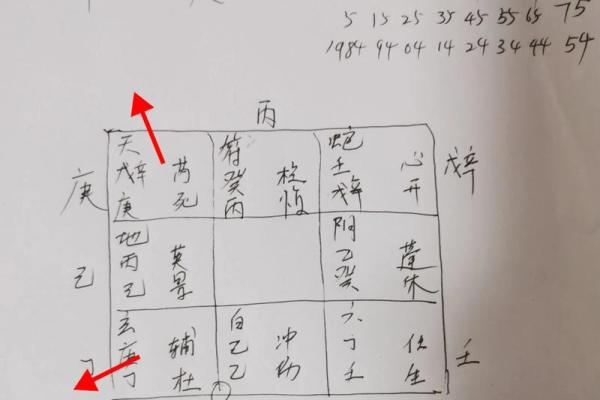 5 15 25 35 45 55 65 75
1984 94 04 14 24 34 44 54
丙
庚
天 芮
戊辛 死
庚
符 柱
癸
丙
蛇 心
壬 开
戊辛
戊辛
己
地 英
丙 景
己
阴 蓬
乙 休
癸
丁
玄 辅
庚 杜
丁
白 冲
己
乙
六 任
丁 生
壬
壬